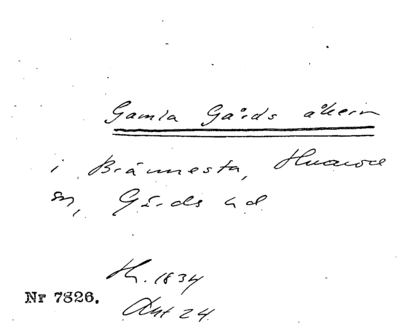 Gamla Gårds åkern
i Brännesta,
sn, Gärds hd
H. 1834
Akt 24
Nr 7826.